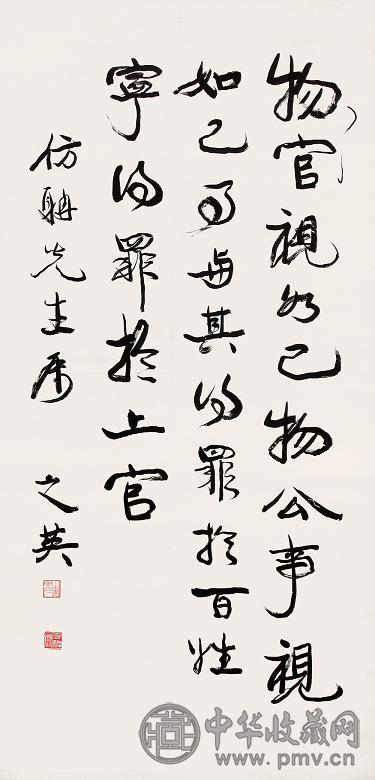 物官視如己物公事視
如己事與其得罪於百姓
寧得罪於上官
仿聃先生属
之英
中华收藏网
www.pmv.cn